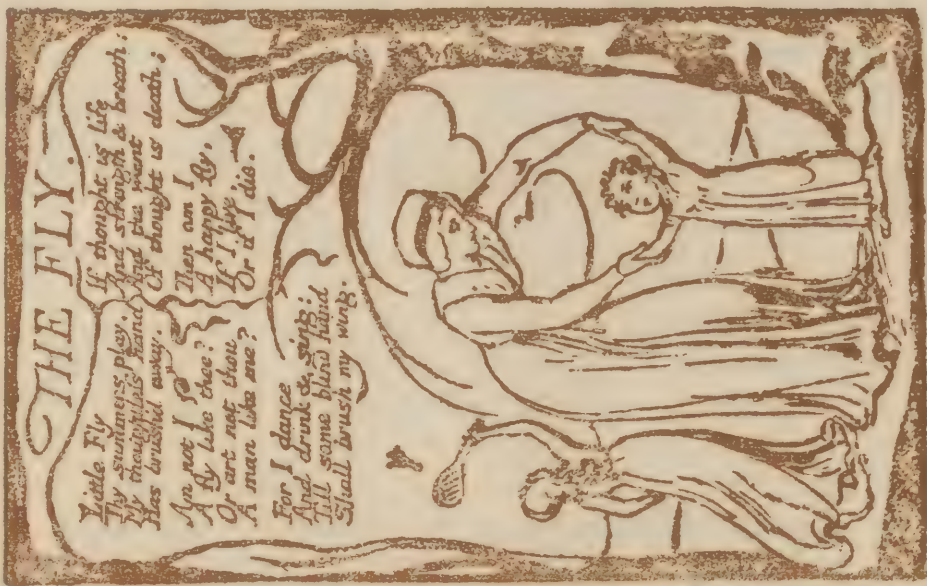 THE FLY.
Little Fly
Thy summers play.
My thoughtless hand
Has brush'd away.
Am not I
A fly like thee?
Or art not thou
A man like me?
For I dance
And drink & sing:
Till some blind hand
Shall brush my wing.
If thought is life
And strength & breath:
And the want
Of thought is death;
Then am I
A happy fly.
If I live
Or if I die.